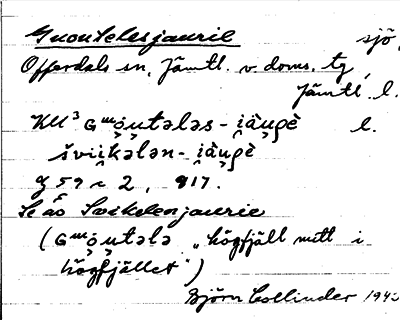 Guoutelesjaurie sjö,
Offerdals sn, Jämtl. v. doms. tg,
Jämtl. l.
KU³ Gᵚo̭utələs - i̯àu̯gè l.
šviikələn - i̯àu̯gè
g 59 r 2, 917.
Se äs Svikelenjaurie
(Gᵚo̭utələ "högfjäll mitt i
högfjället")
Björn Collinder 194